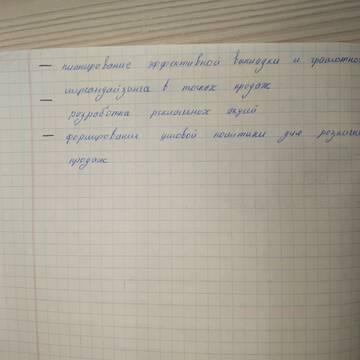 — планирование эффективной выкладки и грамотного
мерчандайзинга в точках продаж
— разработка рекламных акций
— формирование ценовой политики для розничных
продаж